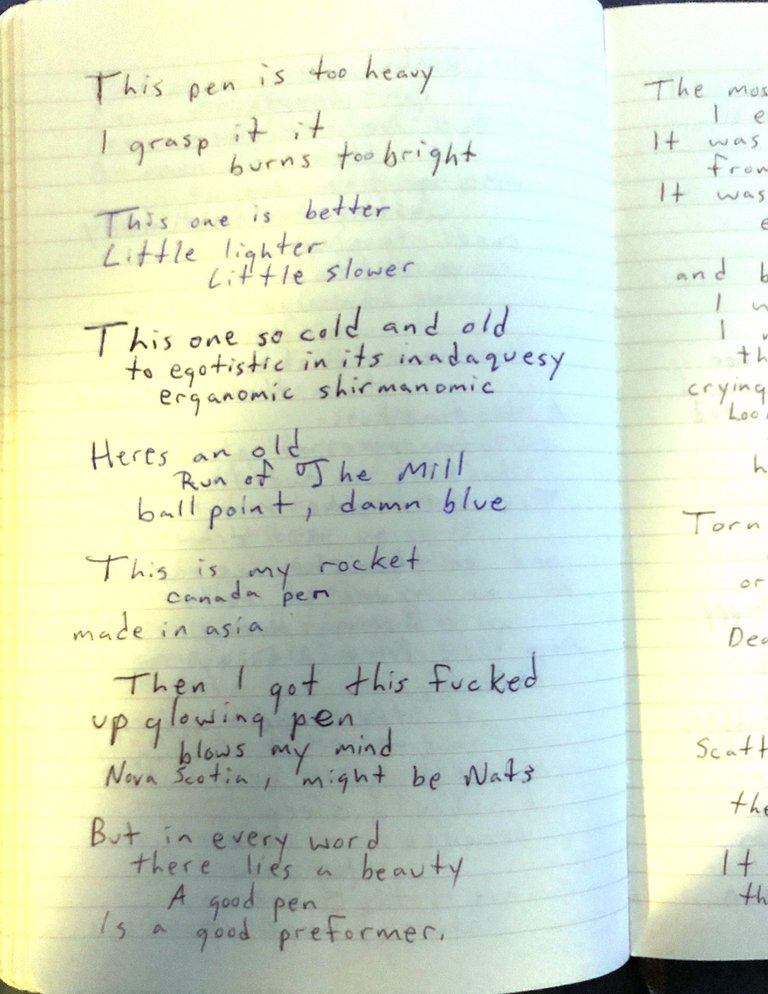 This pen is too heavy
I grasp it it
burns too bright
This one is better
Little lighter
Little slower
This one so cold and old
to egotistic in its inadaquesy
erganomic shirmanomic
Heres an old
Run of The Mill
ball point, damn blue
This is my rocket
canada pen
made in asia
Then I got this fucked
up glowing pen
blows my mind
Nova Scotia, might be Nats
But in every word
there lies a beauty
A good pen
Is a good preformer.
The mos
I e
It was
from
It was
e
and b
I w
I
th
crying
Loo
h
Torn
or
Dea
Scatt
the
It
th